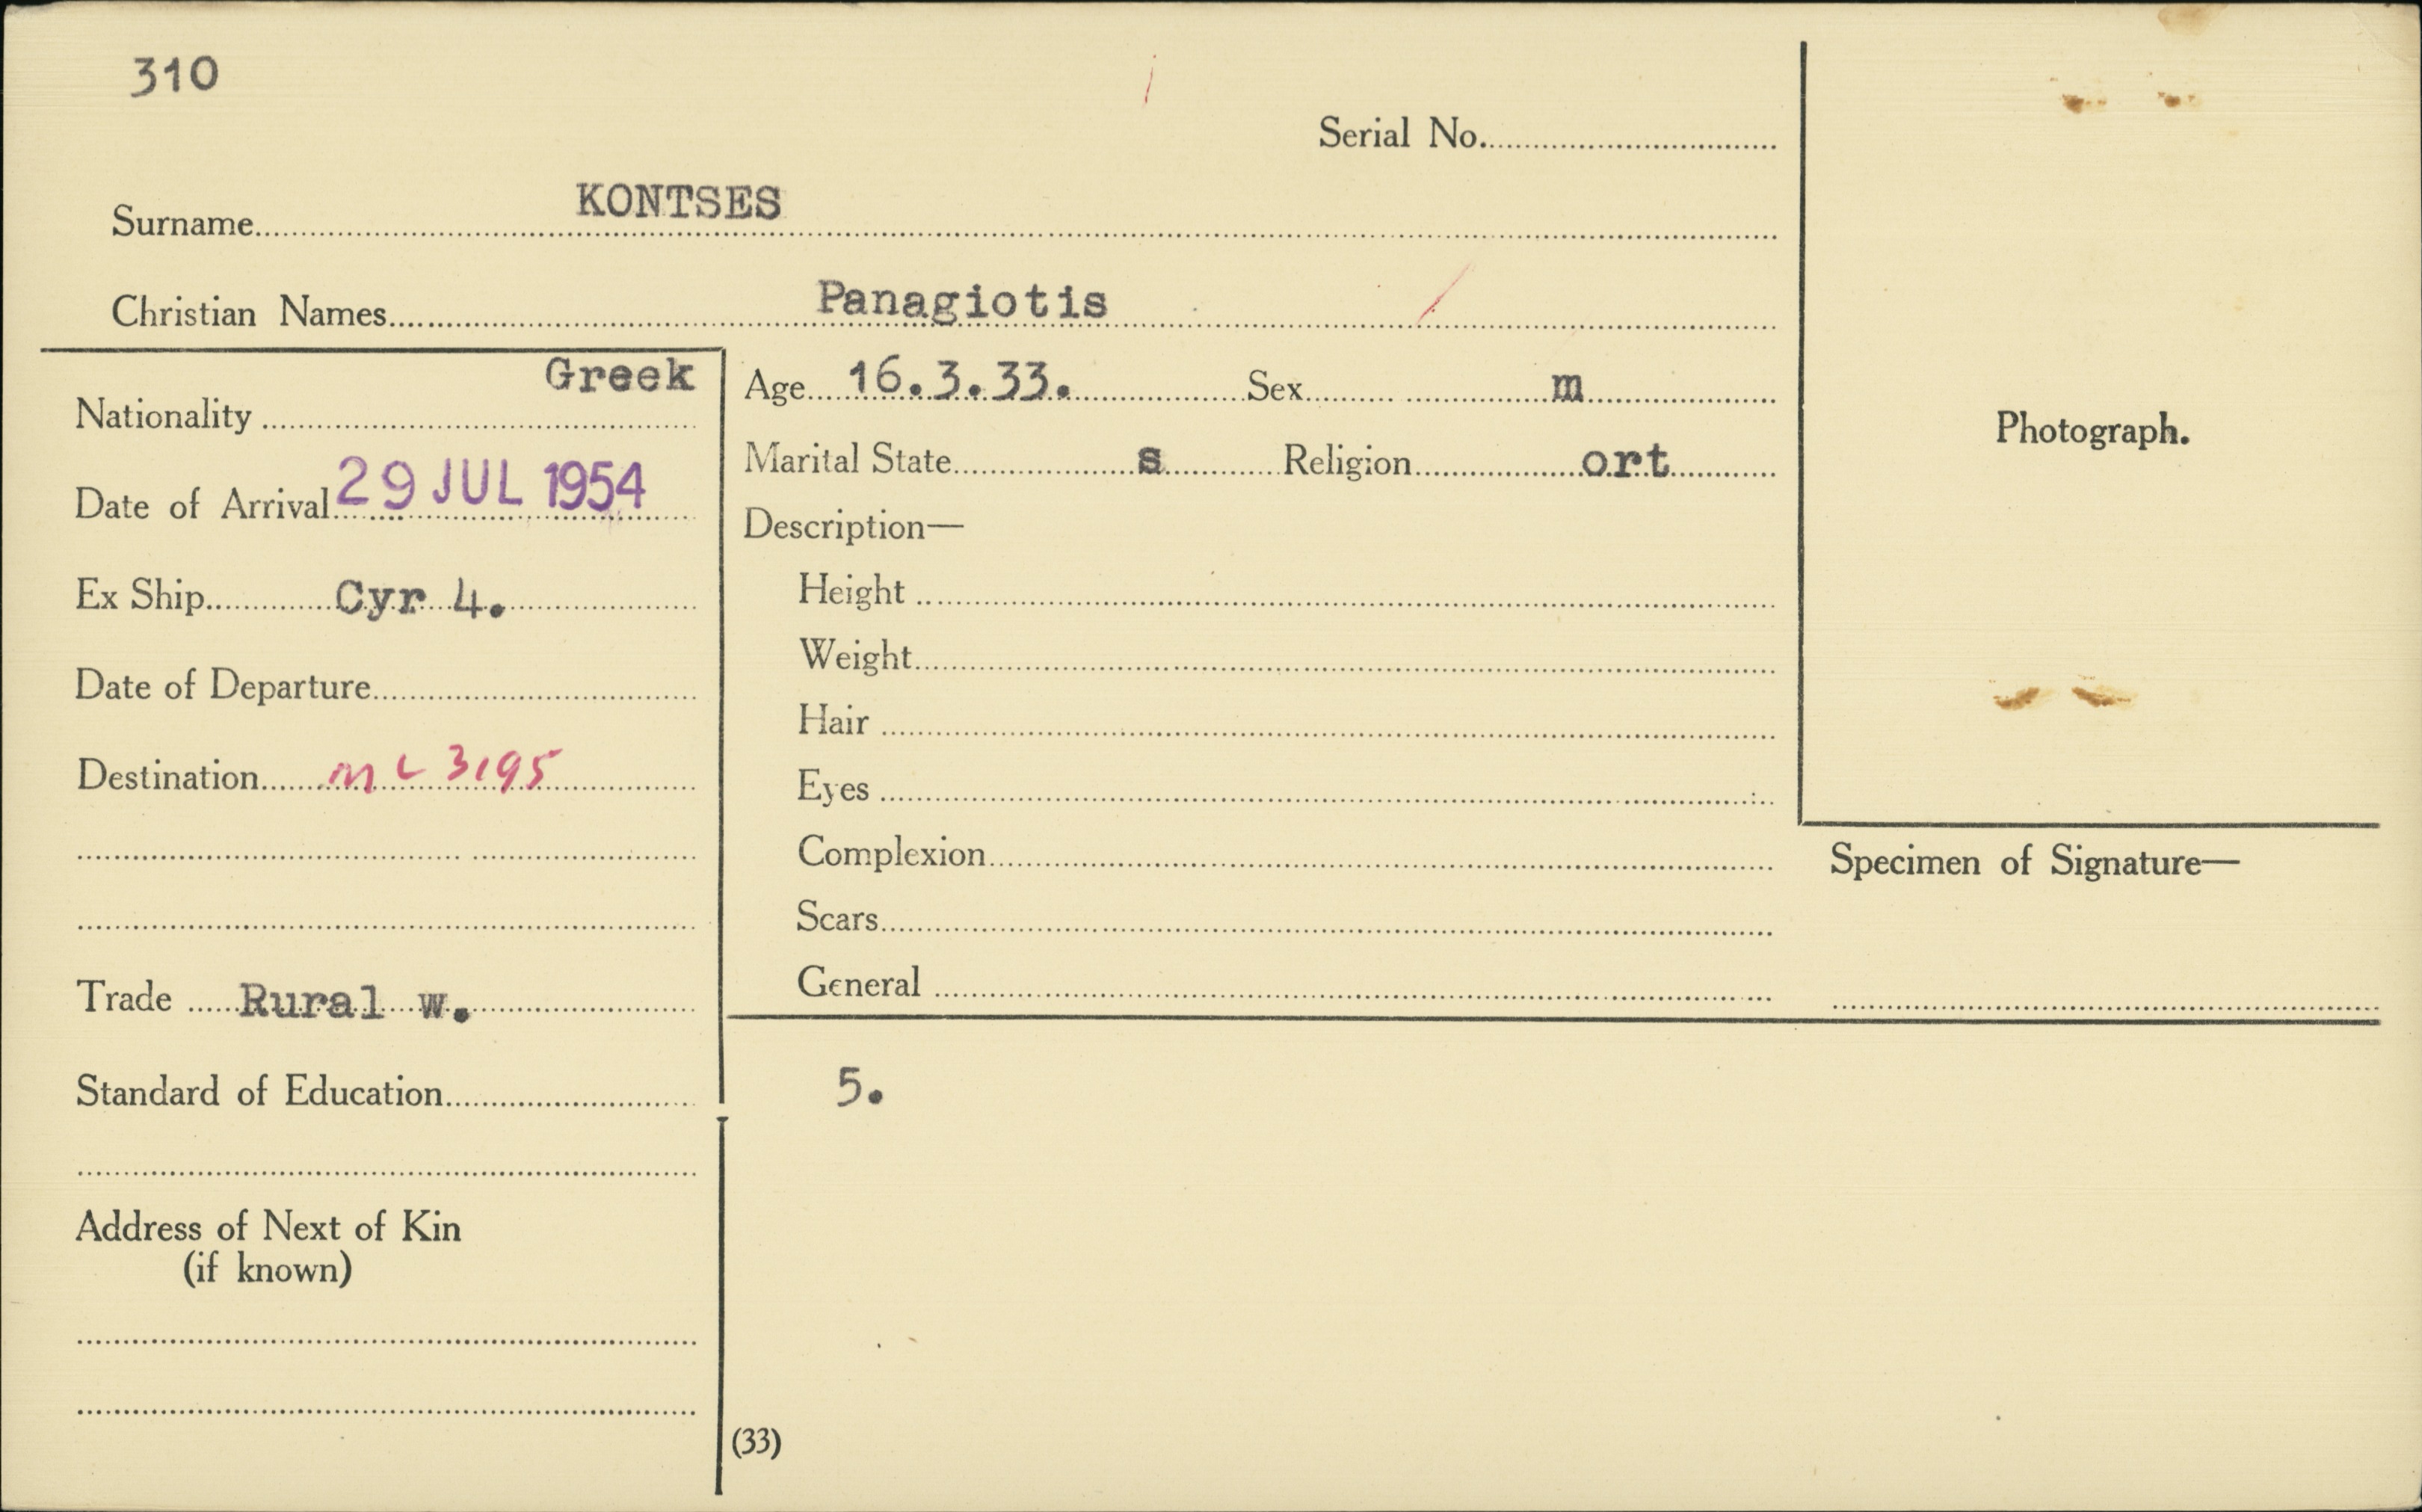 310
Serial No.
Surname KONTSES
Christian Names Panagiotis
Nationality Greek
Age 16.3.33. Sex m
Marital State s Religion ort
Date of Arrival 29 JUL 1954
Description—
Ex Ship Cyr 4.
Height
Weight
Date of Departure
Hair
Destination ML 3195
Eyes
Complexion
Scars
Trade Rural w.
General
Photograph.
Specimen of Signature—
Standard of Education
5.
Address of Next of Kin
(if known)
(33)